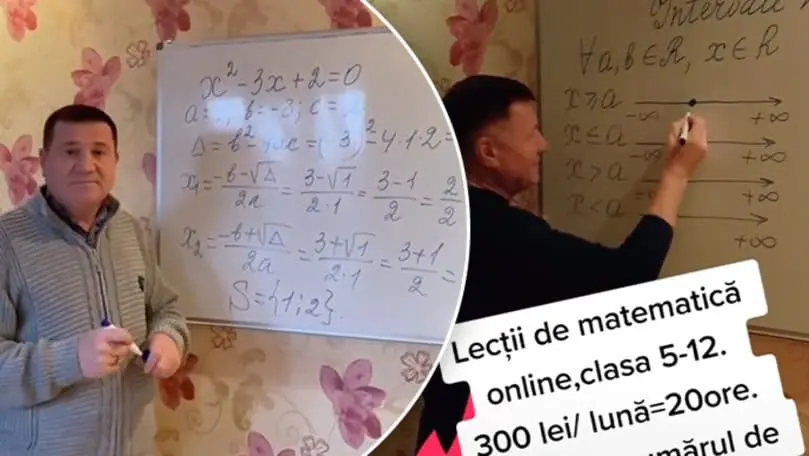 x² - 3x + 2 = 0
a = ; b = -3; c =
Δ = b² - c = ( 3)² - 4·1·2 =
x₁ = (-b-√Δ)/2a = (3-√1)/(2·1) = (3-1)/2 = 2/2
x₂ = (-b+√Δ)/2a = (3+√1)/(2·1) = (3+1)/2 =
S = {1; 2}.
∀ a, b ∈ R, x ∈ R
x ≥ a -∞ +∞
x ≤ a -∞ +∞
x > a -∞ +∞
x < a +∞
Lecții de matematică
online,clasa 5-12.
300 lei/ lună=20ore.
de